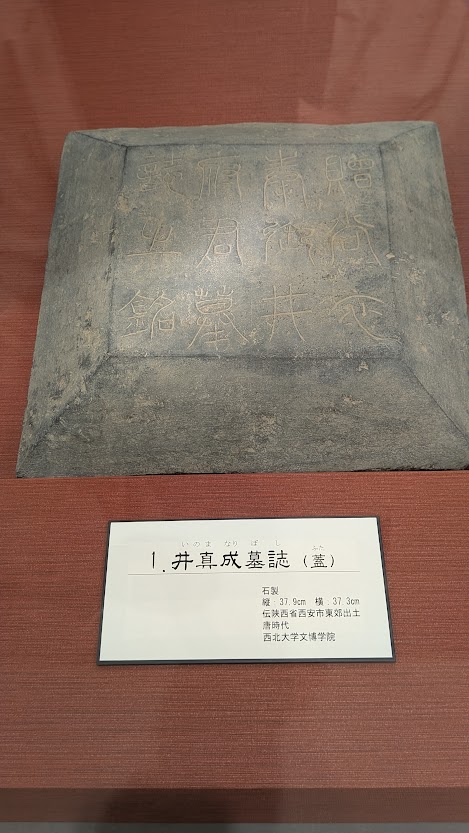 贈尚衣
奉御井
府君墓
誌之銘
いのま なり ぼ し ふた
1.井真成墓誌（蓋）
石製
縦：37.9cm　横：37.3cm
伝陝西省西安市東郊出土
唐時代
西北大学文博学院